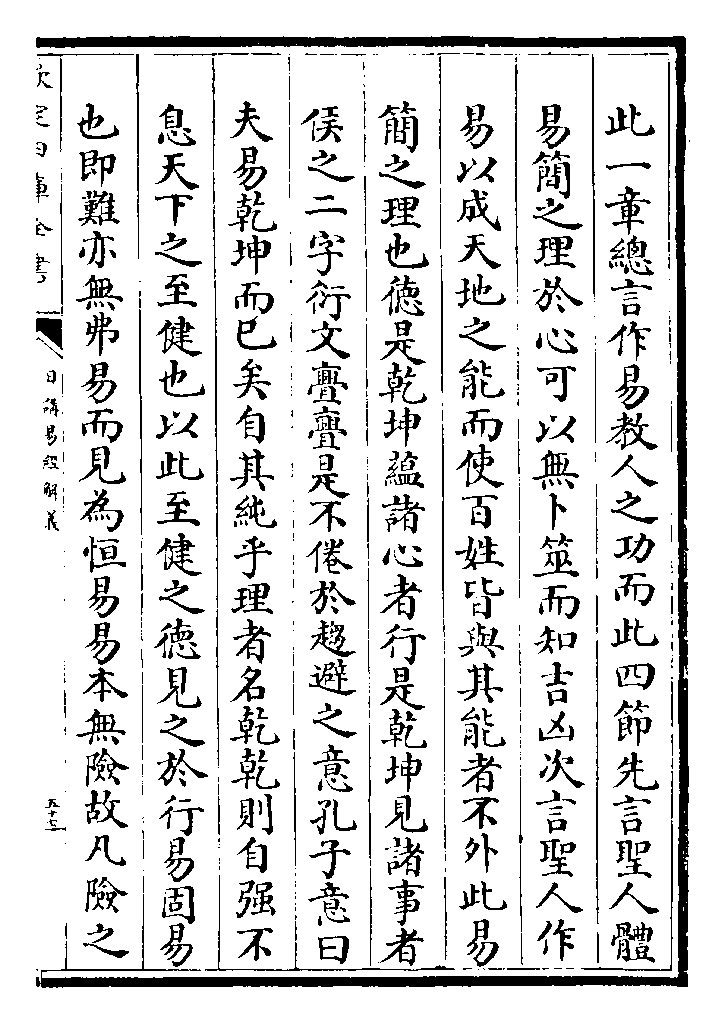 此一章總言作易教人之功而此四節先言聖人體
易簡之理於心可以無卜筮而知吉凶次言聖人作
易以成天地之能而使百姓皆與其能者不外此易
簡之理也德是乾坤蘊諸心者行是乾坤見諸事者
侯之二字衍文亹亹是不倦於趨避之意孔子意曰
夫易乾坤而已矣自其純乎理者名乾乾則自强不
息天下之至健也以此至健之德見之於行易固易
也即難亦無弗易而見為恒易易本無險故凡險之
欽定四庫全書
日講易經解義
五十七